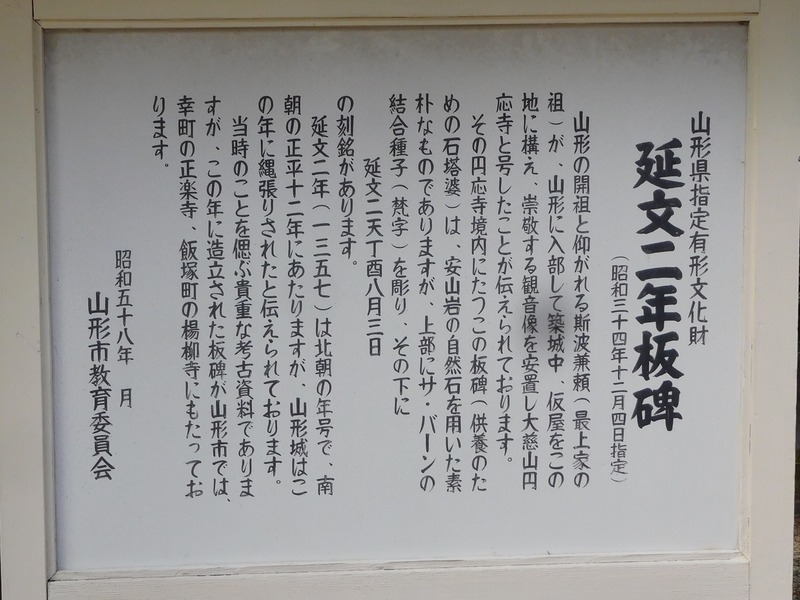 山形県指定有形文化財
延文二年板碑
（昭和三十四年十二月四日指定）
山形の開祖と仰がれる斯波兼頼（最上家の
祖）が、山形に入部して築城中、仮屋をこの
地に構え、崇敬する観音像を安置し大慈山円
応寺と号したことが伝えられております。
その円応寺境内にたつこの板碑（供養のた
めの石塔婆）は、安山岩の自然石を用いた素
朴なものでありますが、上部にサ・バーンの
結合種子（梵字）を彫り、その下に
延文二天丁酉八月三日
の刻銘があります。
延文二年（一三五七）は北朝の年号で、南
朝の正平十二年にあたりますが、山形城はこ
の年に縄張りされたと伝えられております。
当時のことを偲ぶ貴重な考古資料でありま
すが、この年に造立された板碑が山形市では、
幸町の正楽寺、飯塚町の楊柳寺にもたってお
ります。
昭和五十八年　月
山形市教育委員会